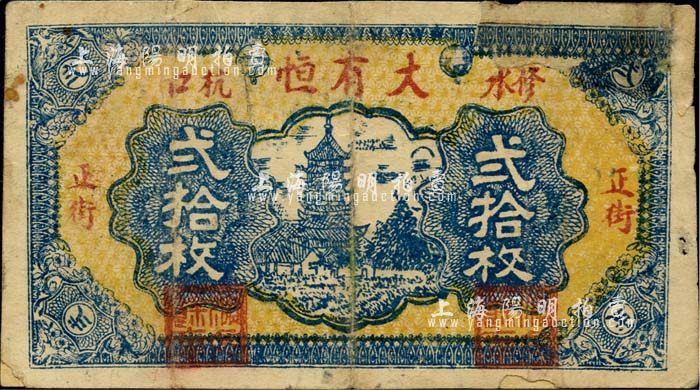 上海陽明拍賣
www.yangmingauction.com
大有恒
修水
杭口
正街
正街
弍拾枚
弍拾枚
上海陽明拍賣
www.yangmingauction.com
上海陽明拍賣
www.yangmingauction.com